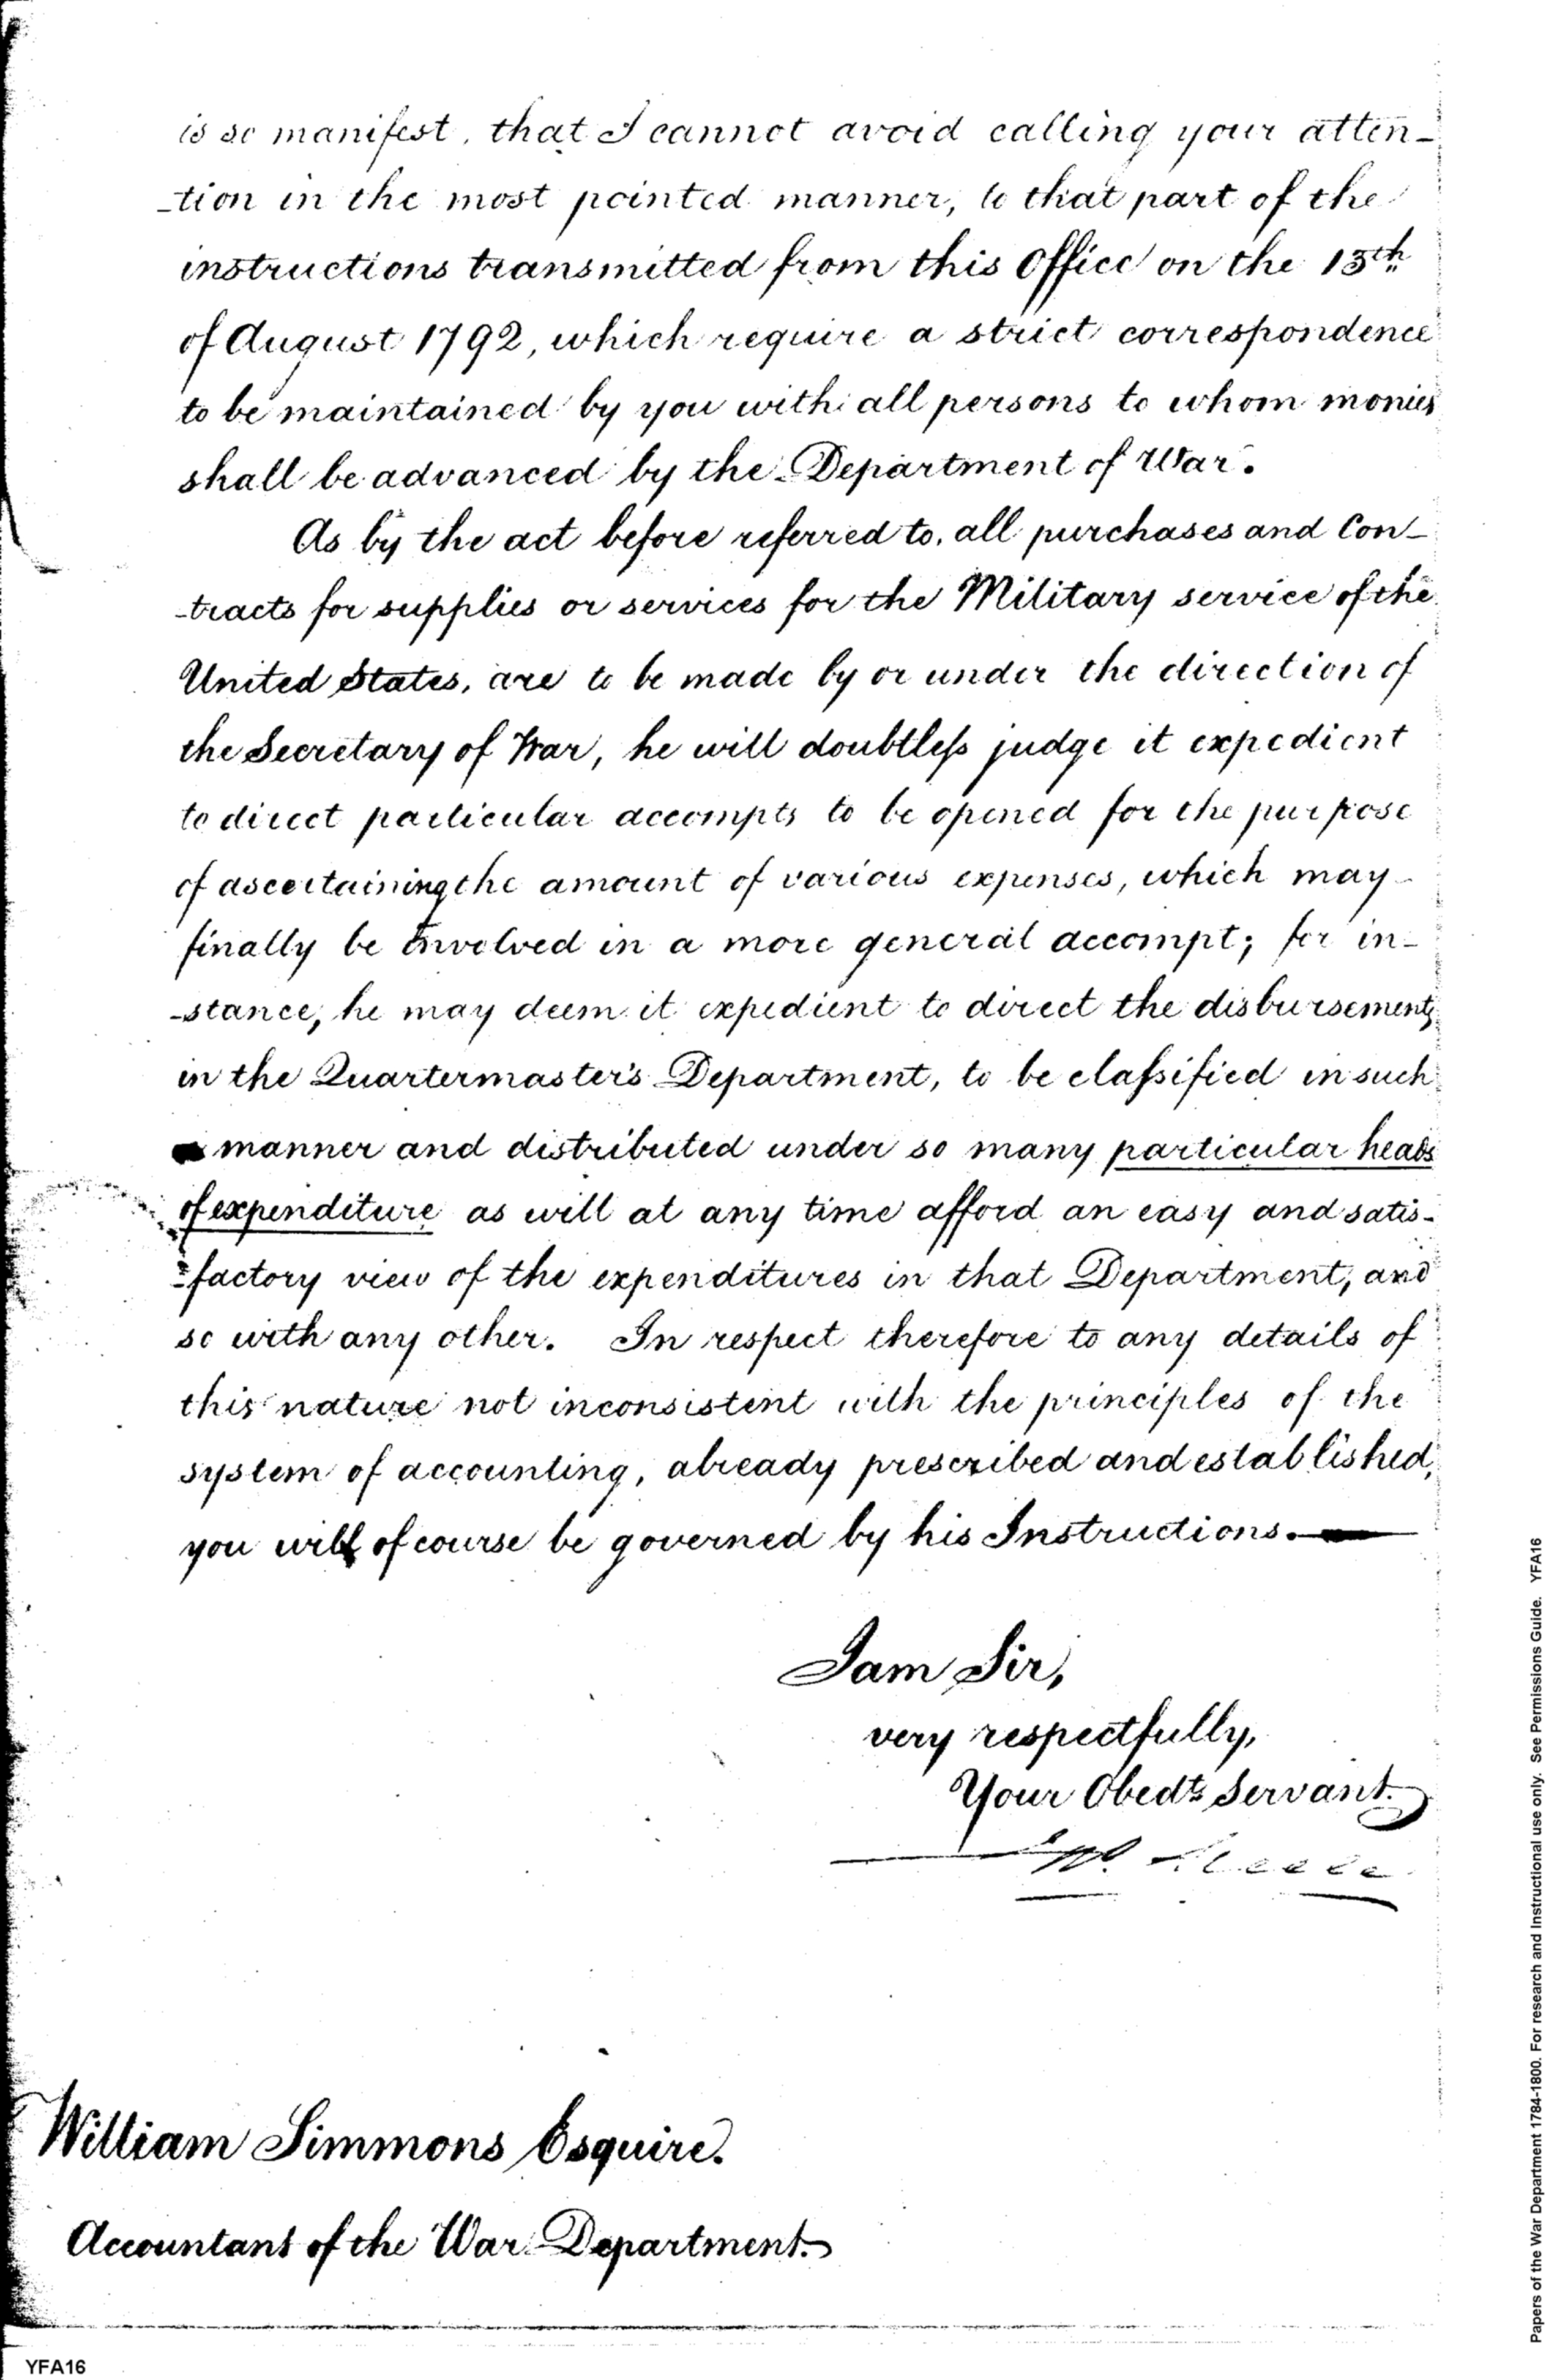 is so manifest, that I cannot avoid calling your atten-
-tion in the most pointed manner, to that part of the
instructions transmitted from this Office on the 13th
of August 1792, which require a strict correspondence
to be maintained by you with all persons to whom monies
shall be advanced by the Department of War.
As by the act before referred to, all purchases and Con-
-tracts for supplies or services for the Military service of the
United States, are to be made by or under the direction of
the Secretary of War, he will doubtless judge it expedient
to direct particular accompts to be opened for the purpose
of ascertaining the amount of various expenses, which may
finally be involved in a more general accompt; for in-
-stance, he may deem it expedient to direct the disbursements
in the Quartermaster's Department, to be classified in such
manner and distributed under so many particular heads
of expenditure as will at any time afford an easy and satis-
-factory view of the expenditures in that Department, and
so with any other. In respect therefore to any details of
this nature not inconsistent with the principles of the
system of accounting, already prescribed and established,
you will of course be governed by his Instructions.
I am Sir,
very respectfully,
Your Obedt Servant.
William Simmons Esquire.
Accountant of the War Department.
YFA16
Papers of the War Department 1784-1800. For research and Instructional use only. See Permissions Guide. YFA16